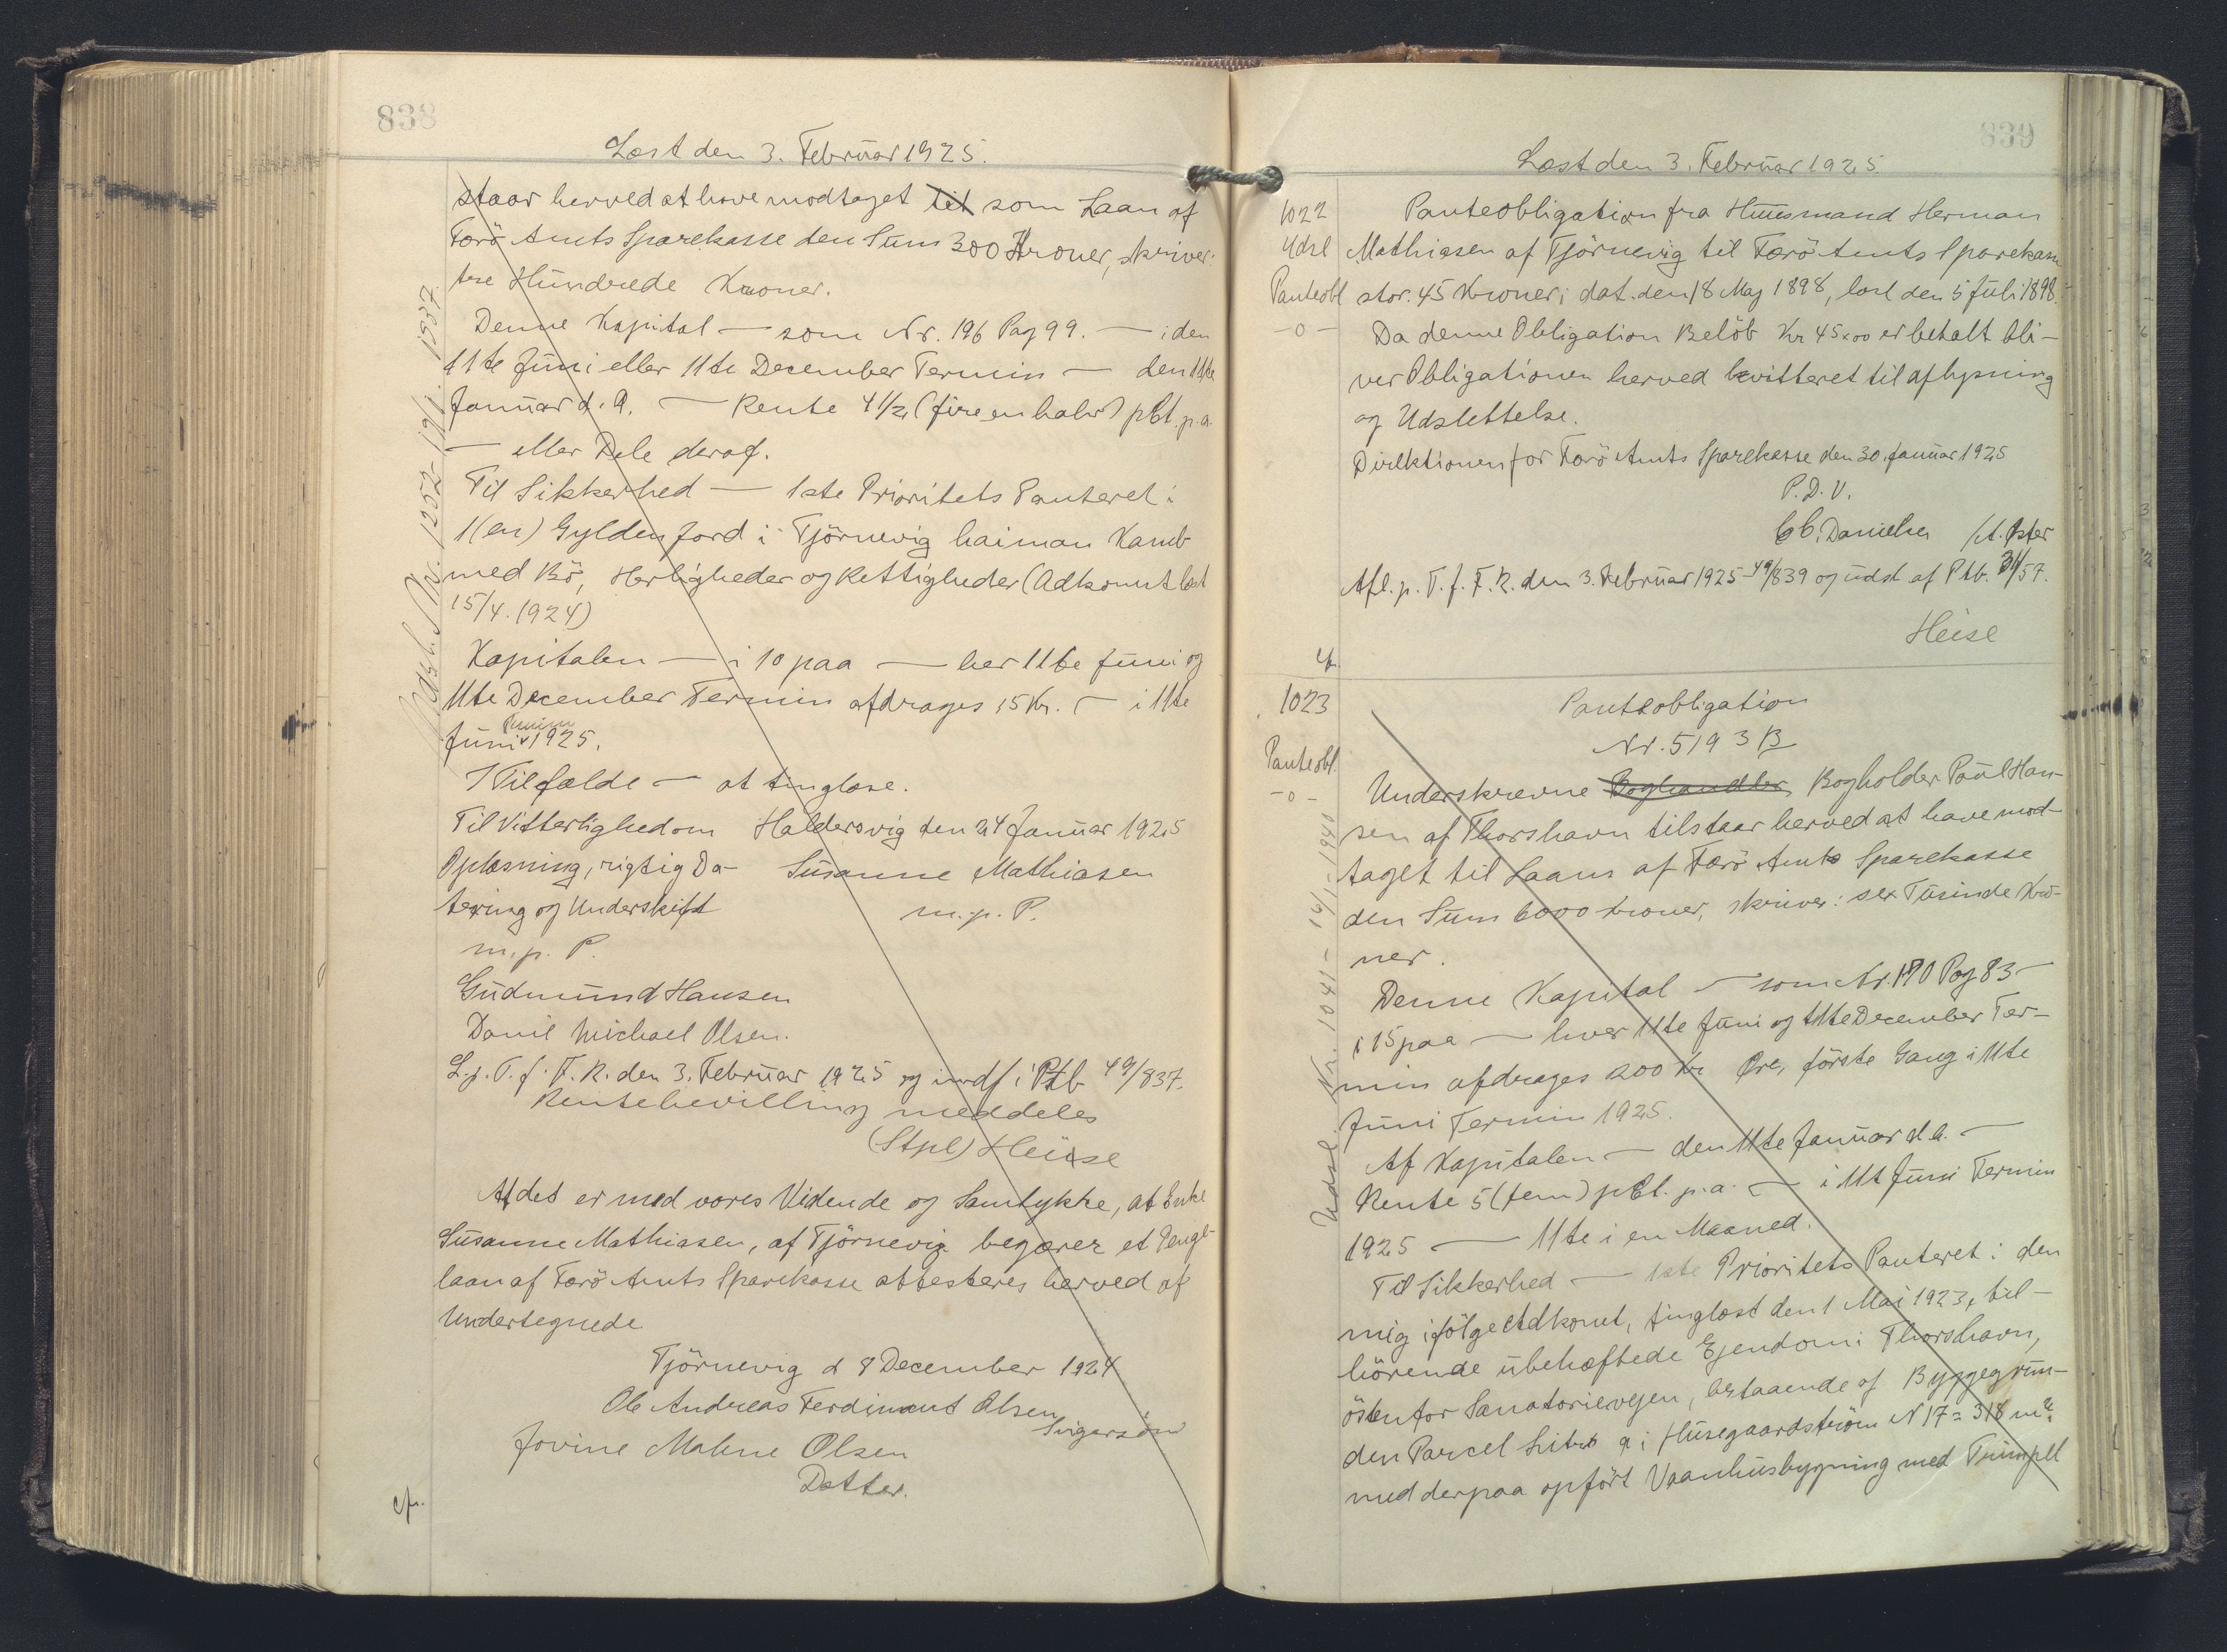 838
Læst den 3. Februar 1925.
staar herved at have modtaget til som Laan af
Færö Amts Sparekasse den Sum 300 Kroner, skriver:
tre Hundrede Kroner.
Denne Kapital — som Nr. 196 Pag 99. — i den
11te Juni eller 11te December Termin — den 11te
Januar d. A. — Rente 4 1/2 (fire en halv) pCt. p.a.
— eller Dele deraf.
Til Sikkerhed — 1ste Prioritets Panteret i
1 (en) Gylden Jord i Tjörnevig haiman Kamb
med Bö, Herligheder og Rettigheder (Adkomst læst
15/4. 1924)
Kapitalen — i 10 paa — her 11te Juni og
11te December Termin afdrages 15 Kr. — i 11te
Termin
Juni 1925.
I Tilfælde — at tinglæse.
Til Vitterlighed om Haldersvig den 24 Januar 1925
Oplæsning, rigtig Da- Susanne Mathiasen
tering og Underskift m.p. P.
m.p. P.
Gudmund Hansen
Danil Michael Olsen.
L. p. T. f. F. R. den 3. Februar 1925 og indf i Ptb 49/837.
Rentebevilling meddeles
(Stpl) Heise
At det er med vores Vidende og Samtykke, at Enke
Susanne Mathiasen, af Tjörnevig begærer et Penge-
laan af Færö Amts Sparekasse attesteres herved af
Undertegnede
Tjörnevig d 8 December 1924
Ole Andreas Ferdinant Olsen
Svigersön
Jovine Malene Olsen
Datter.
cfr.
Udsl. Nr. 1252 - 19/1. 1937.
839
Læst den 3. Februar 1925.
1022
Udsl
Panteobl
-o-
Panteobligation fra Huusmand Herman
Mathiasen af Tjörnevig til Færö Amts Sparekasse
stor. 45 Kroner; dat. den 18 Maj 1898, læst den 5 Juli 1898.
Da denne Obligation Belöb Kr 45 x 00 er betalt bli-
ver Obligationen herved kvitteret til aflysning
og Udslettelse.
Direktionen for Færö Amts Sparekasse den 30. Januar 1925
P. D. V.
C. C. Danielsen /A. Öster
Afl. p. T. f. F. R. den 3. Februar 1925 - 49/839 og udsl. af Ptb. 31/57.
Heise
cfr.
1023
Panteobl.
-o-
Panteobligation
Nr. 5193 B
Underskrevne Boghandler Bogholder Paul Han-
sen af Thorshavn tilstaar herved at have mod-
taget til Laans af Færö Amts Sparekasse
den Sum 6000 Kroner, skriver: sex Tusinde Kro-
ner.
Denne Kapital — som Nr. 170 Pag 83 —
i 15 paa — hver 11te Juni og 11te December Ter-
min afdrages 200 Kr Öre, förste Gang i 11te
Juni Termin 1925.
Af Kapitalen — den 11te Januar d.A. —
Rente 5 (fem) pCt. p.a. — i 11te Juni Termin
1925 — 11te i en Maaned.
Til Sikkerhed — 1ste Prioritets Panteret i den
mig ifölge Adkomst, tinglæst den 1 Mai 1923, til-
hörende ubehæftede Ejendom i Thorshavn,
östen for Sanatorievejen, bestaaende af Byggegrun-
den Parcel Litra a i Husegaardström N 17 = 318 m².
med derpaa opfört Vaanhusbygning med Tümpel
Udsl. Nr. 1041 - 19/1 - 1940